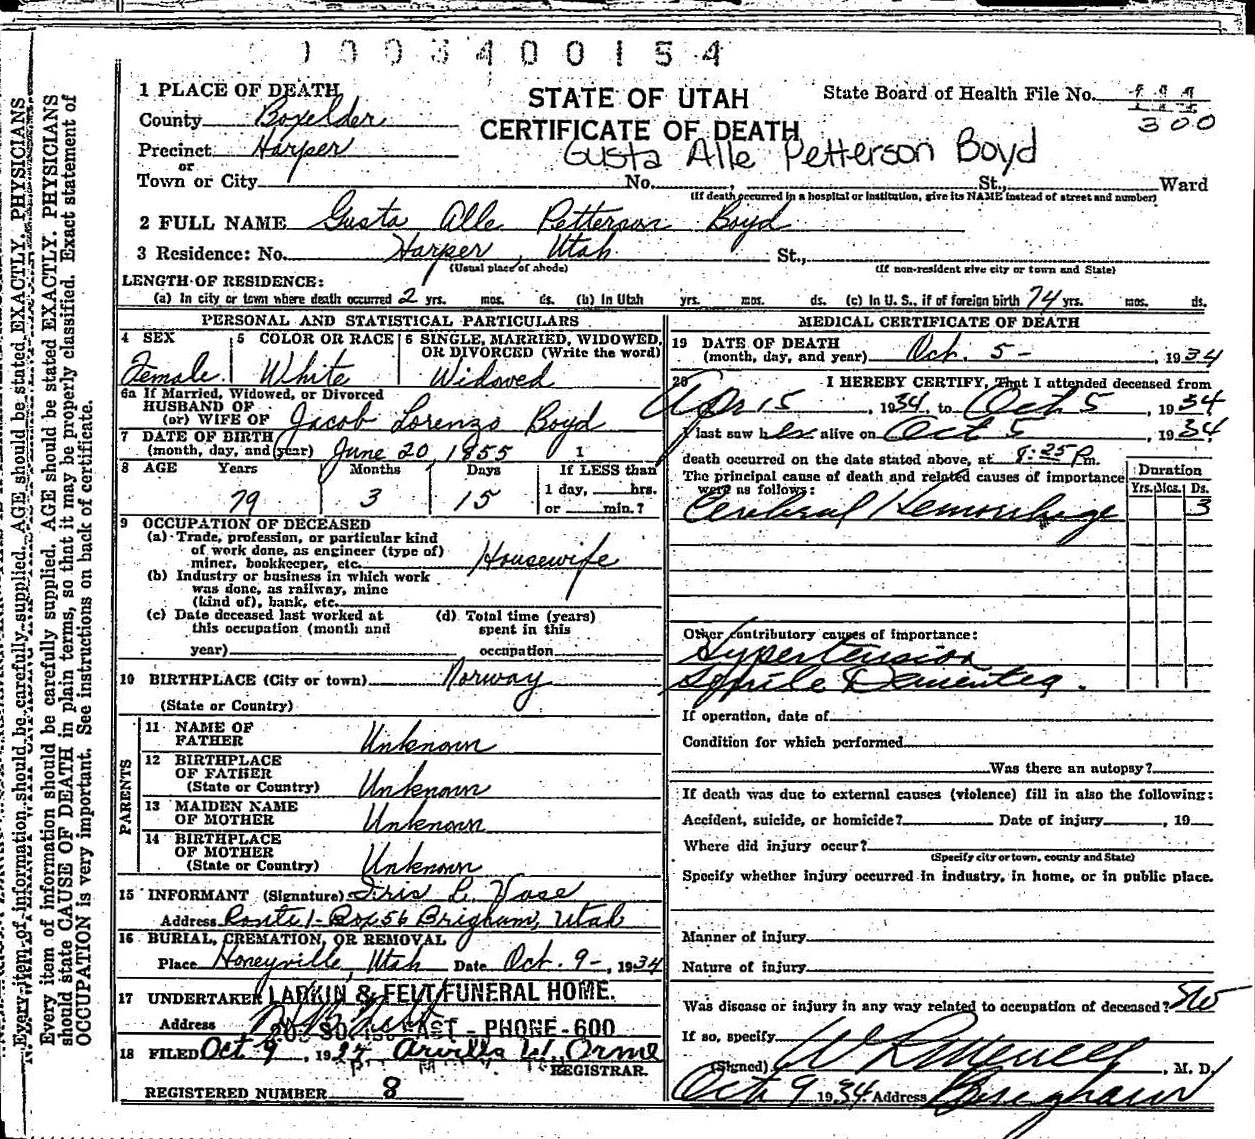 1003400154
1 PLACE OF DEATH
STATE OF UTAH
CERTIFICATE OF DEATH
State Board of Health File No.
300
County Boxelder
Precinct Harper
or
Gusta Alle Petterson Boyd
Town or City No. , St., Ward
(If death occurred in a hospital or institution, give its NAME instead of street and number)
2 FULL NAME Gusta Alle Petterson Boyd
3 Residence: No. Harper, Utah St.,
(Usual place of abode) (If non-resident give city or town and State)
LENGTH OF RESIDENCE:
(a) In city or town where death occurred 2 yrs. mos. ds. (b) In Utah yrs. mos. ds. (c) In U. S., if of foreign birth 74 yrs. mos. ds.
PERSONAL AND STATISTICAL PARTICULARS
4 SEX
Female
5 COLOR OR RACE
White
6 SINGLE, MARRIED, WIDOWED,
OR DIVORCED (Write the word)
Widowed
6a If Married, Widowed, or Divorced
HUSBAND OF
(or) WIFE OF Jacob Lorenzo Boyd
7 DATE OF BIRTH
(month, day, and year) June 20, 1855 1
8 AGE Years Months Days If LESS than
79 3 15 1 day, hrs.
or min.?
9 OCCUPATION OF DECEASED
(a) Trade, profession, or particular kind
of work done, as engineer (type of)
miner, bookkeeper, etc. Housewife
(b) Industry or business in which work
was done, as railway, mine
(kind of), bank, etc.
(c) Date deceased last worked at
this occupation (month and
year)
(d) Total time (years)
spent in this
occupation
10 BIRTHPLACE (City or town) Norway
(State or Country)
PARENTS
11 NAME OF
FATHER Unknown
12 BIRTHPLACE
OF FATHER
(State or Country) Unknown
13 MAIDEN NAME
OF MOTHER Unknown
14 BIRTHPLACE
OF MOTHER
(State or Country) Unknown
15 INFORMANT (Signature) Iris L. Vase
Address Route 1-Box 56 Brigham, Utah
16 BURIAL, CREMATION, OR REMOVAL
Place Honeyville, Utah Date Oct. 9-, 1934
17 UNDERTAKER LARKIN & FELT FUNERAL HOME.
Address EAST - PHONE-600
18 FILED Oct 9, 19 Arvilla W. Orme
REGISTRAR.
REGISTERED NUMBER 8
MEDICAL CERTIFICATE OF DEATH
19 DATE OF DEATH
(month, day, and year) Oct. 5 -, 1934
20 I HEREBY CERTIFY, That I attended deceased from
Apr 15, 1934 to Oct 5, 1934
I last saw her alive on Oct 5, 1934
death occurred on the date stated above, at 9:25 Pm.
The principal cause of death and related causes of importance
were as follows:
Duration
Yrs. Mos. Ds.
Cerebral Hemorrhage 3
Other contributory causes of importance:
Hypertension
Senile Dementia.
If operation, date of
Condition for which performed
Was there an autopsy?
If death was due to external causes (violence) fill in also the following:
Accident, suicide, or homicide? Date of injury , 19
Where did injury occur?
(Specify city or town, county and State)
Specify whether injury occurred in industry, in home, or in public place.
Manner of injury
Nature of injury
Was disease or injury in any way related to occupation of deceased? No
If so, specify
(Signed) , M. D.
Oct 9 1934 Address Brigham
Every item of information should be carefully supplied. AGE should be stated EXACTLY. PHYSICIANS
should state CAUSE OF DEATH in plain terms, so that it may be properly classified. Exact statement of
OCCUPATION is very important. See instructions on back of certificate.